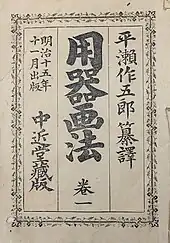 平瀬作五郎纂譯
用器画法
卷一
明治十五年
十月出版
中近堂蔵版